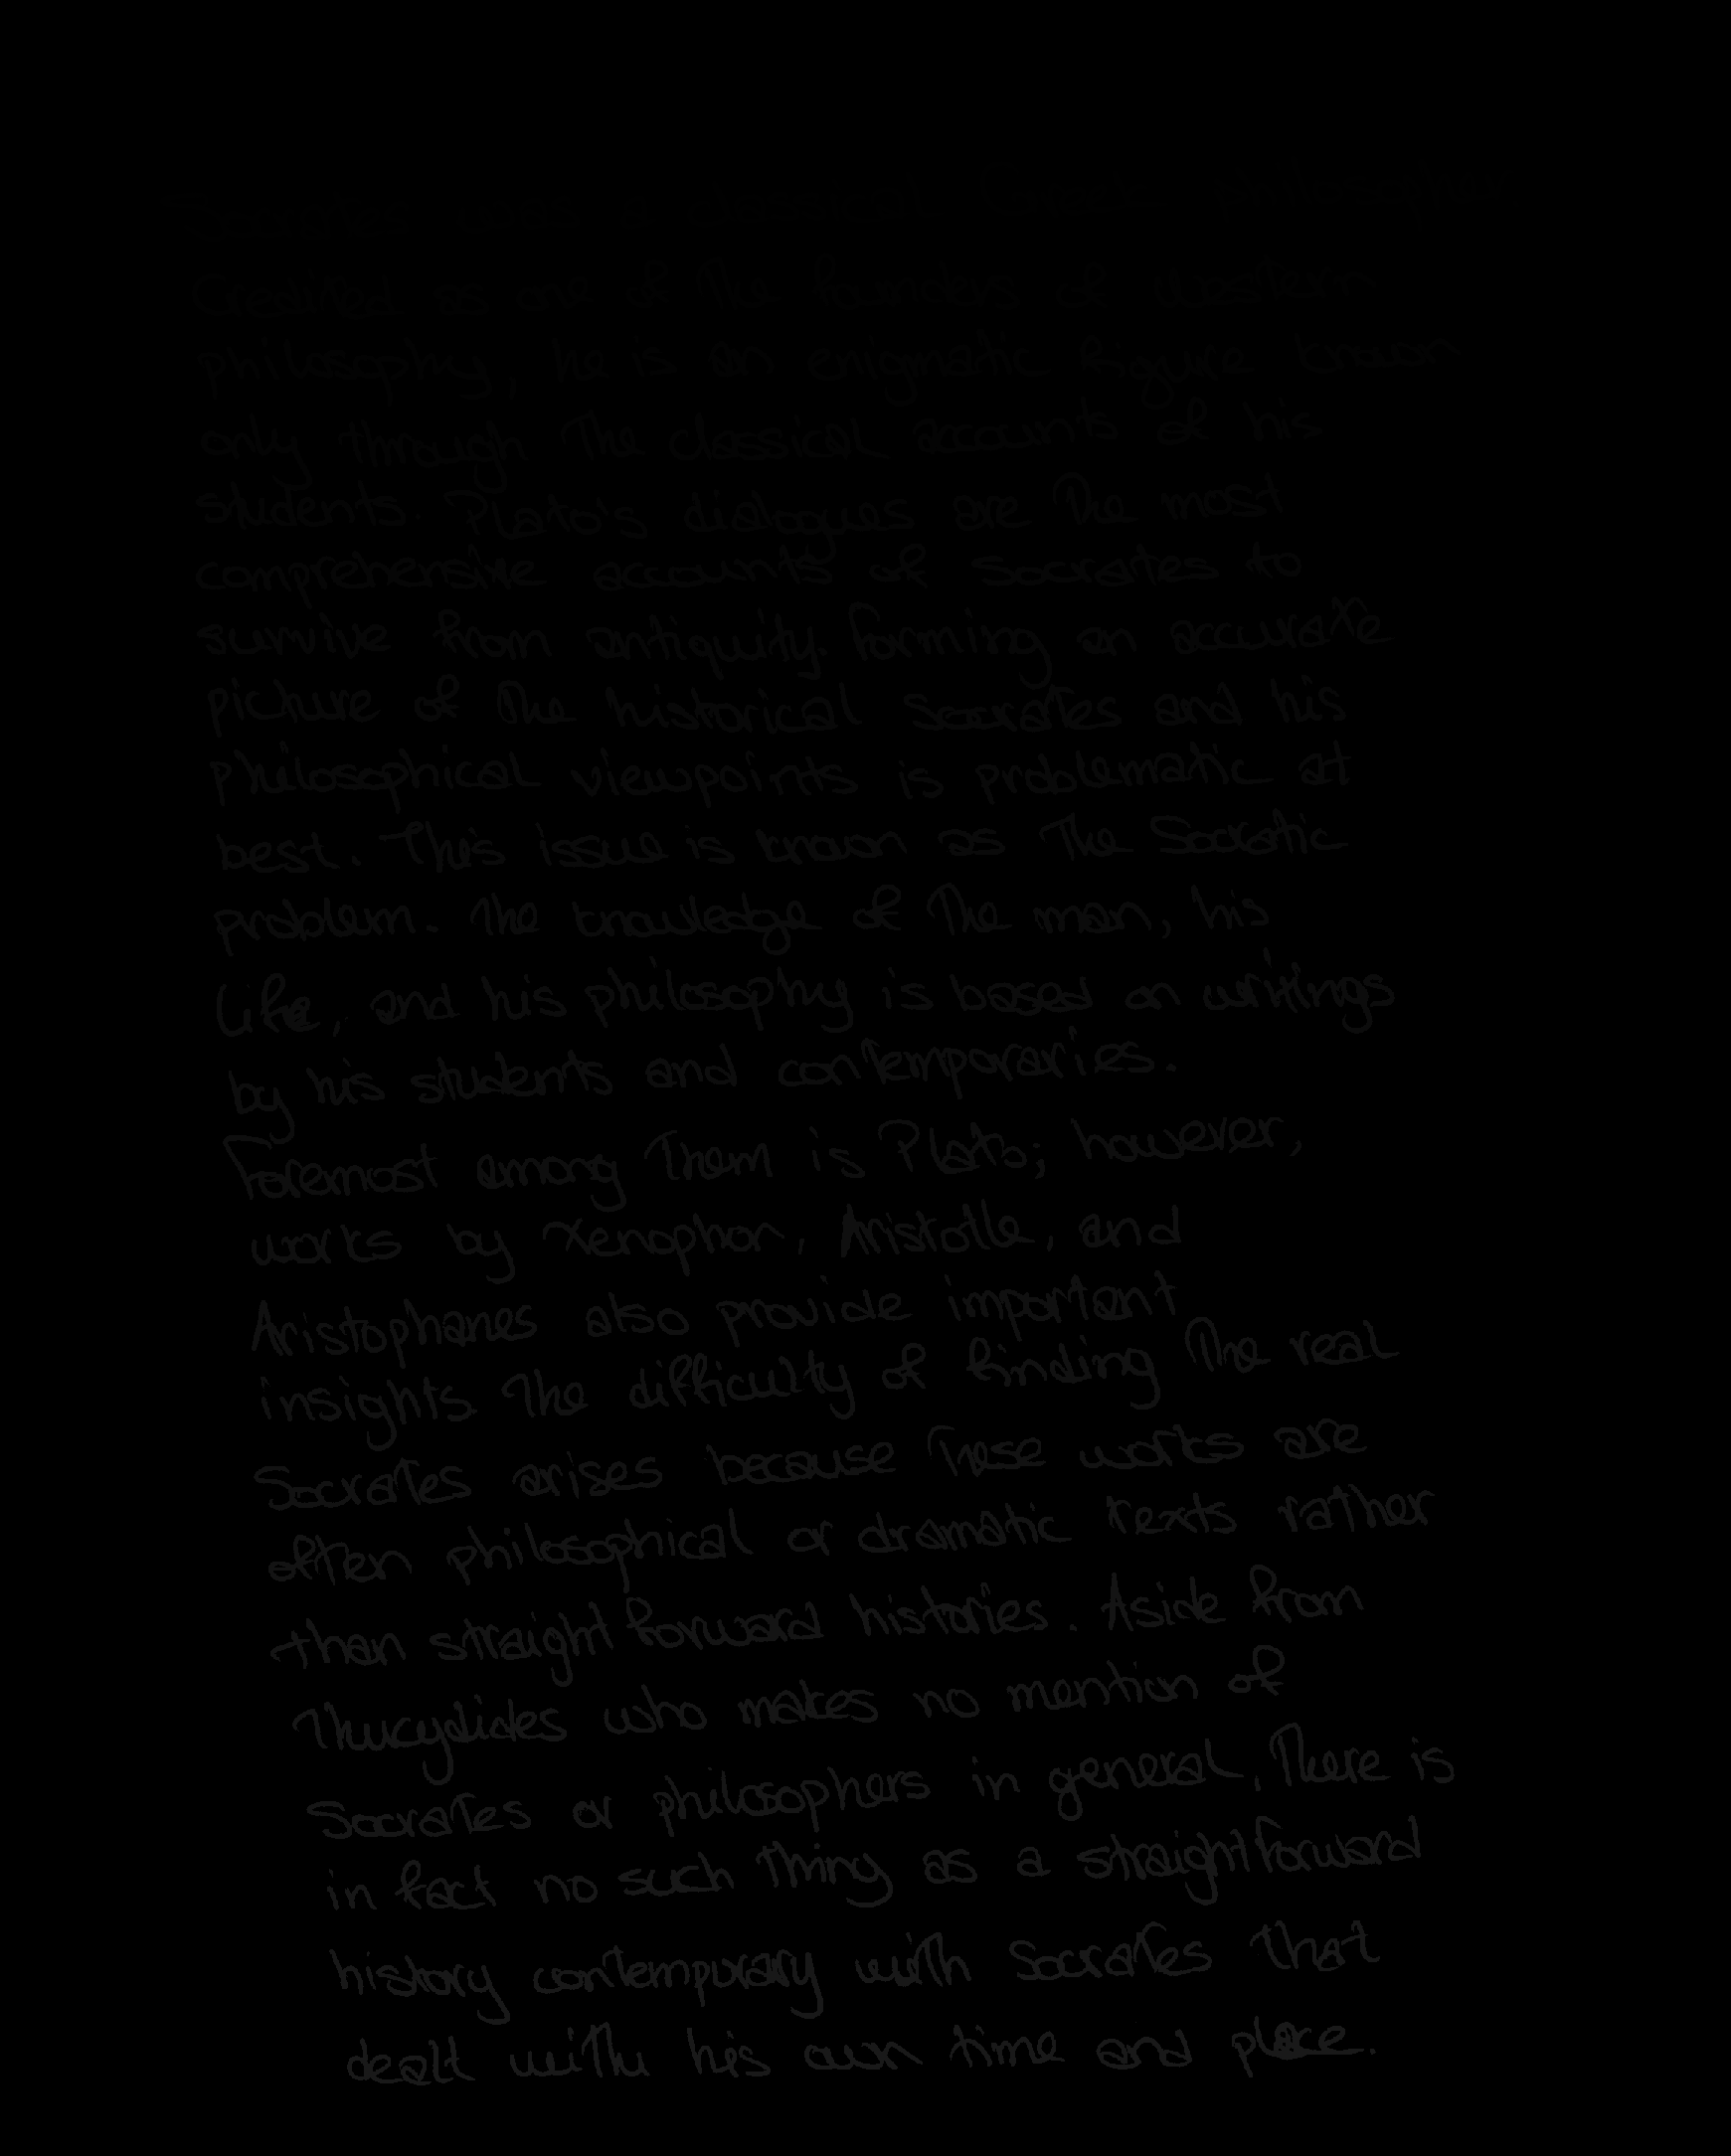 Socrates was a classical Greek philosopher
Credited as one of the founders of Western
philosophy, he is an enigmatic figure known
only through the classical accounts of his
students. Plato's dialogues are the most
comprehensive accounts of Socrates to
survive from antiquity. Forming an accurate
picture of the historical Socrates and his
philosophical viewpoints is problematic at
best. This issue is known as the Socratic
problem. The knowledge of the man, his
life, and his philosophy is based on writings
by his students and contemporaries.
Foremost among them is Plato; however,
works by Xenophon, Aristotle, and
Aristophanes also provide important
insights. The difficulty of finding the real
Socrates arises because these works are
often philosophical or dramatic texts rather
than straightforward histories. Aside from
Thucydides who makes no mention of
Socrates or philosophers in general. There is
in fact no such thing as a straightforward
history contemporary with Socrates that
dealt with his own time and place.